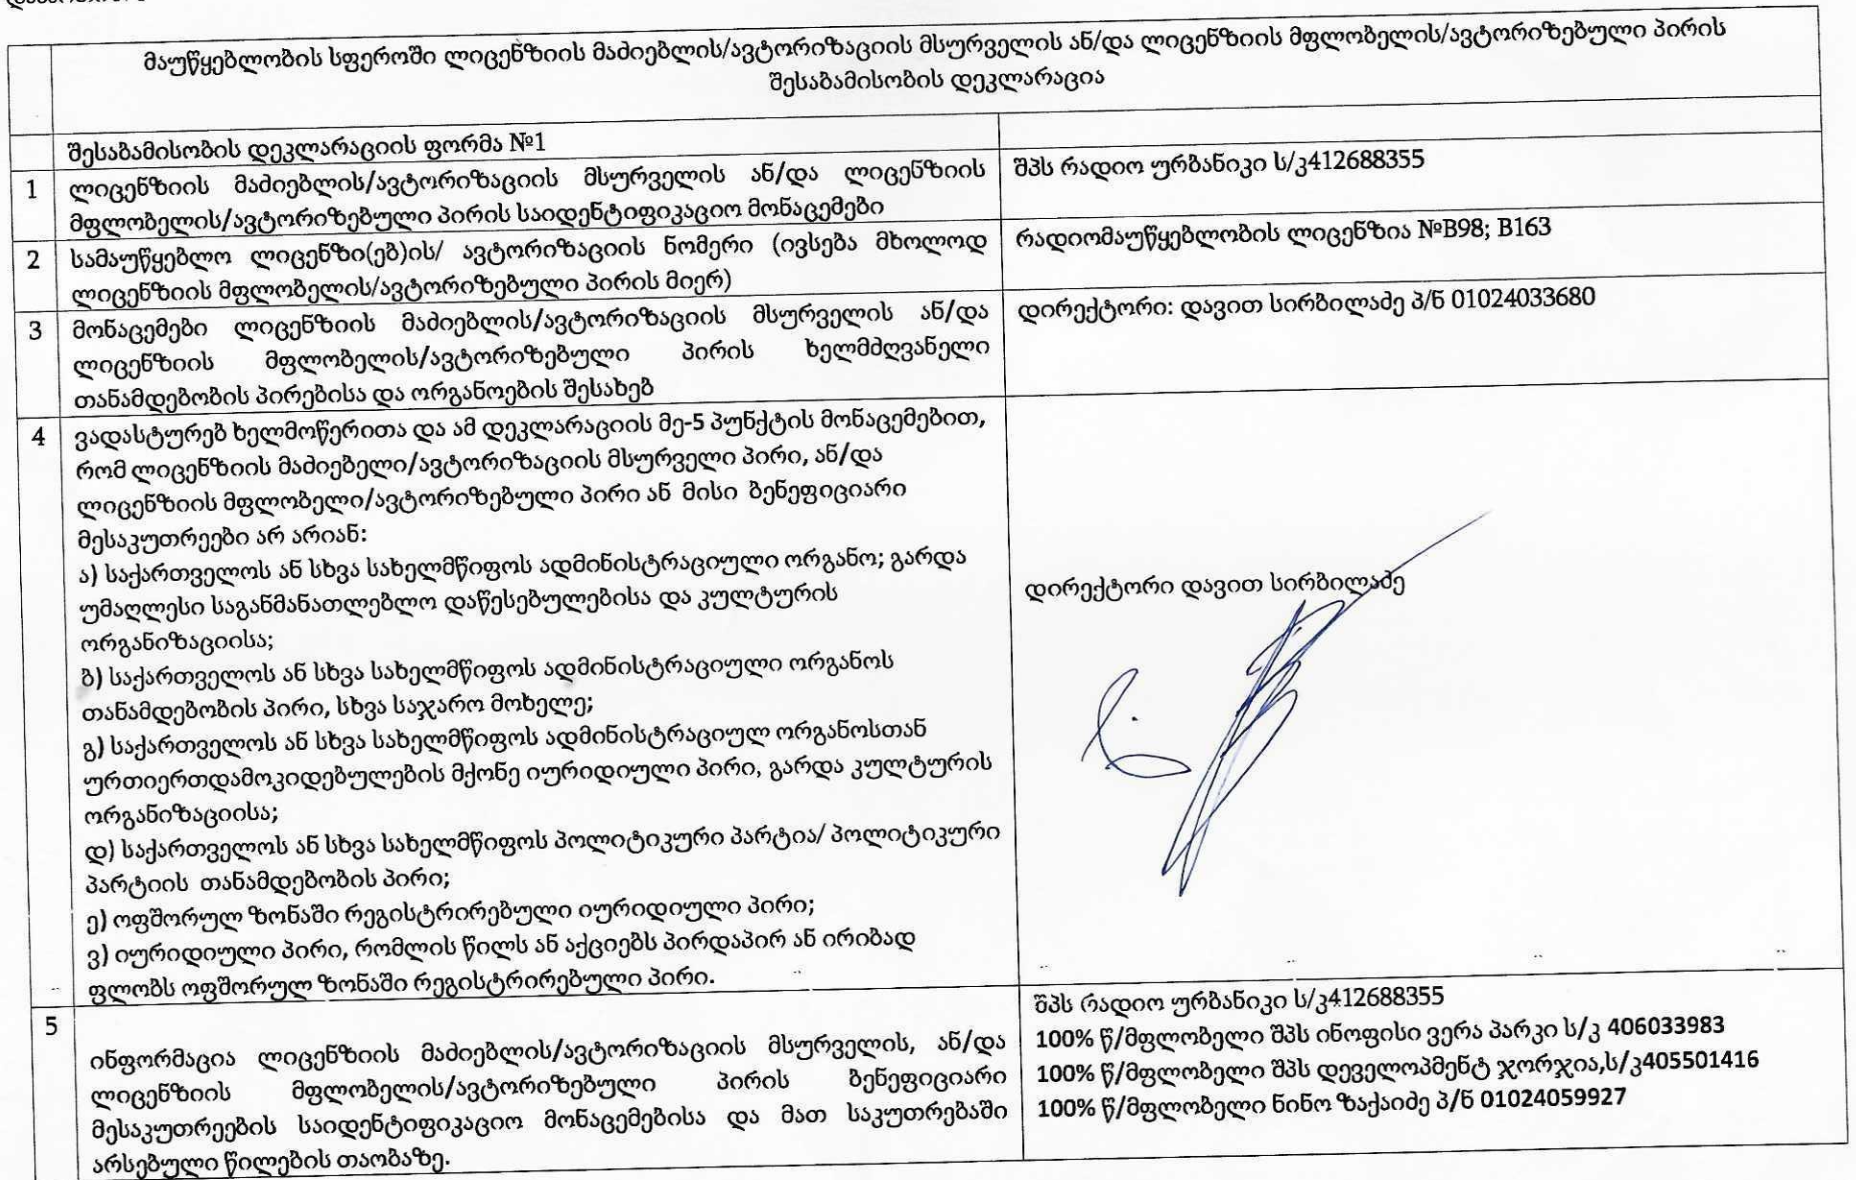 მაუწყებლობის სფეროში ლიცენზიის მაძიებლის/ავტორიზაციის მსურველის ან/და ლიცენზიის მფლობელის/ავტორიზებული პირის
შესაბამისობის დეკლარაცია
შესაბამისობის დეკლარაციის ფორმა №1
1 ლიცენზიის მაძიებლის/ავტორიზაციის მსურველის ან/და ლიცენზიის
მფლობელის/ავტორიზებული პირის საიდენტიფიკაციო მონაცემები
შპს რადიო ურბანიკი ს/კ412688355
2 სამაუწყებლო ლიცენზი(ებ)ის/ ავტორიზაციის ნომერი (ივსება მხოლოდ
ლიცენზიის მფლობელის/ავტორიზებული პირის მიერ)
რადიომაუწყებლობის ლიცენზია №B98; B163
3 მონაცემები ლიცენზიის მაძიებლის/ავტორიზაციის მსურველის ან/და
ლიცენზიის მფლობელის/ავტორიზებული პირის ხელმძღვანელი
თანამდებობის პირებისა და ორგანოების შესახებ
დირექტორი: დავით სირბილაძე პ/ნ 01024033680
4 ვადასტურებ ხელმოწერითა და ამ დეკლარაციის მე-5 პუნქტის მონაცემებით,
რომ ლიცენზიის მაძიებელი/ავტორიზაციის მსურველი პირი, ან/და
ლიცენზიის მფლობელი/ავტორიზებული პირი ან მისი ბენეფიციარი
მესაკუთრეები არ არიან:
ა) საქართველოს ან სხვა სახელმწიფოს ადმინისტრაციული ორგანო; გარდა
უმაღლესი საგანმანათლებლო დაწესებულებისა და კულტურის
ორგანიზაციისა;
ბ) საქართველოს ან სხვა სახელმწიფოს ადმინისტრაციული ორგანოს
თანამდებობის პირი, სხვა საჯარო მოხელე;
გ) საქართველოს ან სხვა სახელმწიფოს ადმინისტრაციულ ორგანოსთან
ურთიერთდამოკიდებულების მქონე იურიდიული პირი, გარდა კულტურის
ორგანიზაციისა;
დ) საქართველოს ან სხვა სახელმწიფოს პოლიტიკური პარტია/ პოლიტიკური
პარტიის თანამდებობის პირი;
ე) ოფშორულ ზონაში რეგისტრირებული იურიდიული პირი;
ვ) იურიდიული პირი, რომლის წილს ან აქციებს პირდაპირ ან ირიბად
ფლობს ოფშორულ ზონაში რეგისტრირებული პირი.
დირექტორი დავით სირბილაძე
5 ინფორმაცია ლიცენზიის მაძიებლის/ავტორიზაციის მსურველის, ან/და
ლიცენზიის მფლობელის/ავტორიზებული პირის ბენეფიციარი
მესაკუთრეების საიდენტიფიკაციო მონაცემებისა და მათ საკუთრებაში
არსებული წილების თაობაზე.
შპს რადიო ურბანიკი ს/კ412688355
100% წ/მფლობელი შპს ინოფისი ვერა პარკი ს/კ 406033983
100% წ/მფლობელი შპს დეველოპმენტ ჯორჯია,ს/კ405501416
100% წ/მფლობელი ნინო ზაქაიძე პ/ნ 01024059927